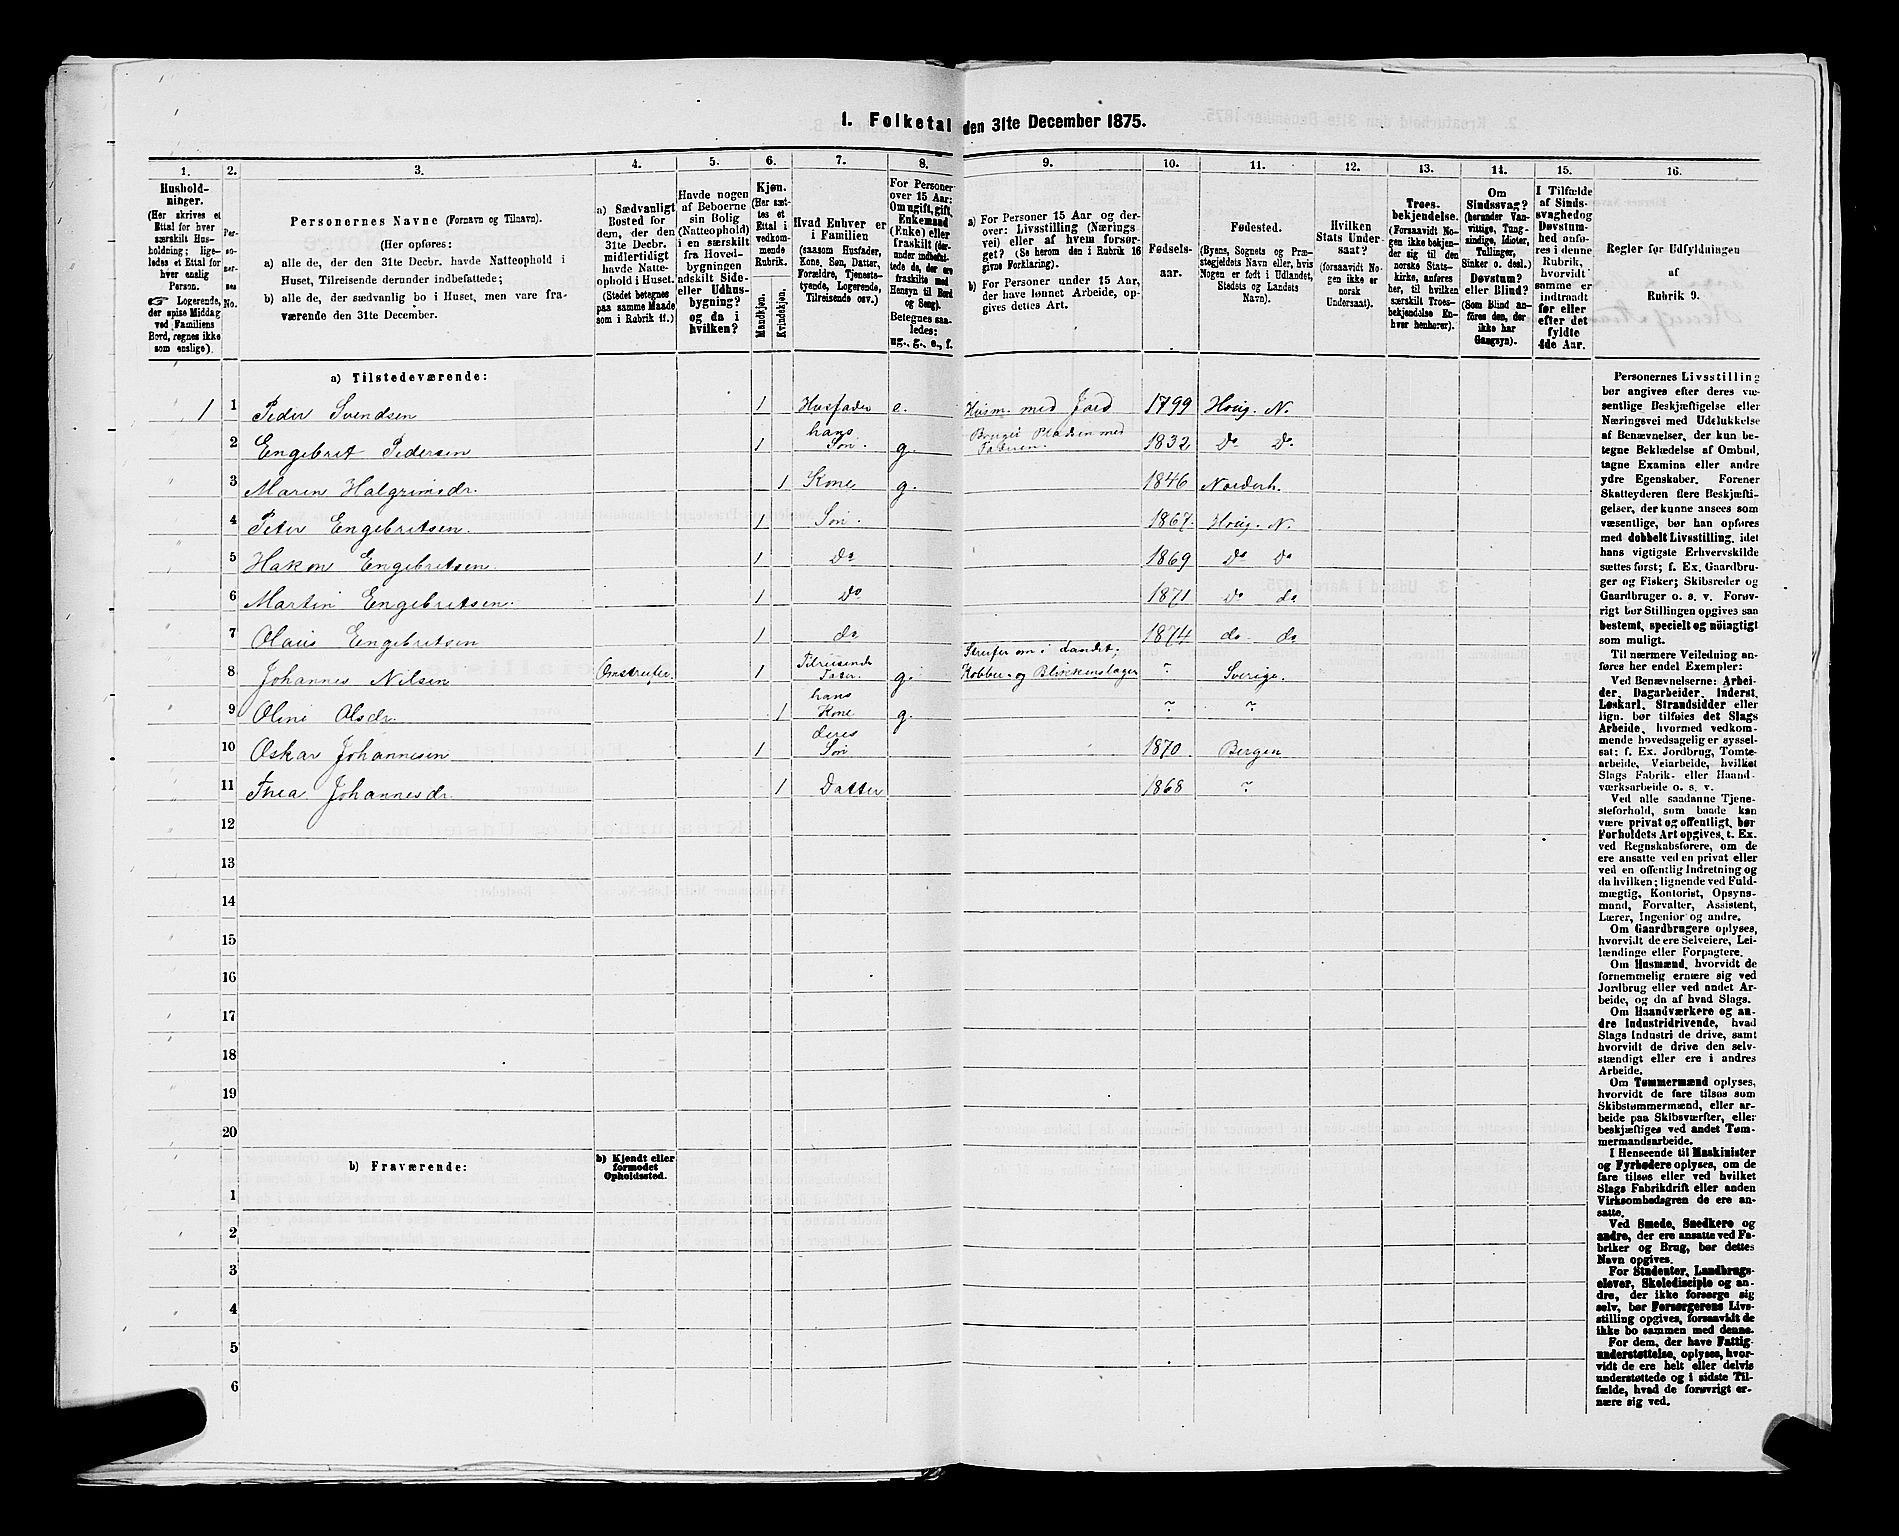 1. Folketal den 31te December 1875.
1. 2. 3. 4. 5. 6. 7. 8. 9. 10. 11. 12. 13. 14. 15. 16.
Hushold-
ninger.
(Her skrives et
Ettal for hver
særskilt Hus-
holdning; lige-
ledes et Ettal for
hver enslig
Person.
☞ Logerende,
der spise Middag
ved Familiens
Bord, regnes ikke
som enslige).
Per-
so-
ner-
nes
No.
Personernes Navne (Fornavn og Tilnavn).
(Her opføres:
a) alle de, der den 31te Decbr. havde Natteophold i
Huset, Tilreisende derunder indbefattede;
b) alle de, der sædvanlig bo i Huset, men vare fra-
værende den 31te December.
a) Sædvanligt
Bosted for
dem, der den
31te Decbr.
midlertidigt
havde Natte-
ophold i Huset.
(Stedet betegnes
paa samme Maade
som i Rubrik 11.)
Havde nogen
af Beboerne
sin Bolig
(Natteophold)
i en særskilt
fra Hoved-
bygningen
adskilt Side-
eller Udhus-
bygning?
og da i
hvilken?
Kjøn.
(Her sæt-
tes et
Ettal i
vedkom-
mende
Rubrik.
Mandkjøn.
Kvindekjøn.
Hvad Enhver er
i Familien
(saasom Husfader,
Kone, Søn, Datter,
Forældre, Tjeneste-
tyende, Logerende,
Tilreisende osv.)
For Personer
over 15 Aar:
Om ugift, gift,
Enkemand
(Enke) eller
fraskilt (der-
under indbefat-
tede de, der ere
fraskilte med
Hensyn til Bord
og Seng).
Betegnes saa-
ledes:
ug., g., e., f.
a) For Personer 15 Aar og der-
over: Livsstilling (Nærings-
vei) eller af hvem forsør-
get? (Se herom den i Rubrik 16
givne Forklaring).
b) For Personer under 15 Aar,
der have lønnet Arbeide, op-
gives dettes Art.
Fødsels-
aar.
Fødested.
(Byens, Sognets og Præ-
stegjeldets Navn eller, hvis
Nogen er født i Udlandet,
Stedets og Landets
Navn).
Hvilken
Stats Under-
saat?
(forsaavidt No-
gen ikke er
norsk
Undersaat).
Troes-
bekjendelse.
(Forsaavidt No-
gen ikke bekjen-
der sig til den
norske Stats-
kirke, anføres
her, til hvilken
særskilt Troes-
bekjendelse En-
hver henhører).
Om
Sindssvag?
(herunder Van-
vittige, Tung-
sindige, Idioter,
Tullinger,
Sinker o. desl.)
Døvstum?
eller Blind?
(Som Blind an-
føres den, der
ikke har
Gangsyn).
I Tilfælde
af Sinds-
svaghed
og Døvstum-
hed anfø-
res i denne
Rubrik,
hvorvidt
samme er
indtraadt
før eller
efter det
fyldte
4de Aar.
Regler før Udfyldningen
af
Rubrik 9.
a) Tilstedeværende:
1 1 Peder Svendsen 1 Husfader e. Husm. med Jord 1799 Houg. N.
2 Engebrit Pedersen 1 hans Søn. g. Bruger Pladsen med Faderen. 1832 Do Do
3 Maren Halgrimsdr. 1 Kone g. 1846 Norderh.
4 Peter Engebritsen. 1 Søn. 1867. Houg. N.
5 Hakon Engebritsen. 1 Do 1869 Do Do
6 Martin Engebritsen. 1 Do 1871 Do do
7 Olaus Engebritsen 1 do 1874 do do
8 Johannes Nilsen Omstreifer. 1 Tilreisende Fader. g. Streifer om i Landet; Kobber- og Blikkenslager ? Sverige.
9 Oline Olsdr. 1 hans Kone g. ? ?
10 Oskar Johannesen 1 deres Søn 1870. Bergen
11 Thea Johannesdr. 1 Datter 1868 ?
12
13
14
15
16
17
18
19
20
b) Fraværende:
b) Kjendt eller
formodet
Opholdssted.
1
2
3
4
5
6
Personernes Livsstilling
bør angives efter deres væ-
sentlige Beskjæftigelse eller
Næringsvei med Udelukkelse
af Benævnelser, der kun be-
tegne Beklædelse af Ombud,
tagne Examina eller andre
ydre Egenskaber. Forener
Skatteyderen flere Beskjæfti-
gelser, der kunne ansees som
væsentlige, bør han opføres
med dobbelt Livsstilling, idet
hans vigtigste Erhvervskilde
sættes først; f. Ex. Gaardbru-
ger og Fisker; Skibsreder og
Gaardbruger o. s. v. Forøv-
rigt bør Stillingen opgives saa
bestemt, specielt og nøiagtigt
som muligt.
Til nærmere Veiledning an-
føres her endel Exempler:
Ved Benævnelserne: Arbei-
der, Dagarbeider, Inderst,
Løskarl, Strandsidder eller
lign. bør tilføies det Slags
Arbeide, hvormed vedkom-
mende hovedsagelig er syssel-
sat; f. Ex. Jordbrug, Tomte-
arbeide, Veiarbeide, hvilket
Slags Fabrik- eller Haand-
værksarbeide o. s. v.
Ved alle saadanne Tjene-
steforhold, som baade kan
være privat og offentligt, bør
Forholdets Art opgives, t. Ex.
ved Regnskabsførere, om de
ere ansatte ved en privat eller
ved en offentlig Indretning og
da hvilken; lignende ved Fuld-
mægtig, Kontorist, Opsyns-
mand, Forvalter, Assistent,
Lærer, Ingeniør og andre.
Om Gaardbrugere oplyses,
hvorvidt de ere Selveiere, Lei-
lændinge eller Forpagtere.
Om Husmænd, hvorvidt de
fornemmelig ernære sig ved
Jordbrug eller ved andet Ar-
beide, og da af hvad Slags.
Om Haandværkere og an-
dre Industridrivende, hvad
Slags Industri de drive, samt
hvorvidt de drive den selv-
stændigt eller ere i andres
Arbeide.
Om Tømmermænd oplyses,
hvorvidt de fare tilsøs som
Skibstømmermænd, eller ar-
beide paa Skibsværfter, eller
beskjæftiges ved andet Tøm-
mermandsarbeide.
I Henseende til Maskinister
og Fyrbødere oplyses, om de
fare tilsøs eller ved hvilket
Slags Fabrikdrift eller anden
Virksomhedsgren de ere an-
satte.
Ved Smede, Snedkere og
andre, der ere ansatte ved Fa-
briker og Brug, bør dettes
Navn opgives.
For Studenter, Landbrugs-
elever, Skoledisciple og an-
dre, der ikke forsørge sig
selv, bør Forsørgerens Livs-
stilling opgives, forsaavidt de
ikke bo sammen med denne.
For dem, der have Fattig-
understøttelse, oplyses, hvor-
vidt de ere helt eller delvis
understøttede og i sidste Til-
fælde, hvad de forøvrigt er-
nære sig ved.